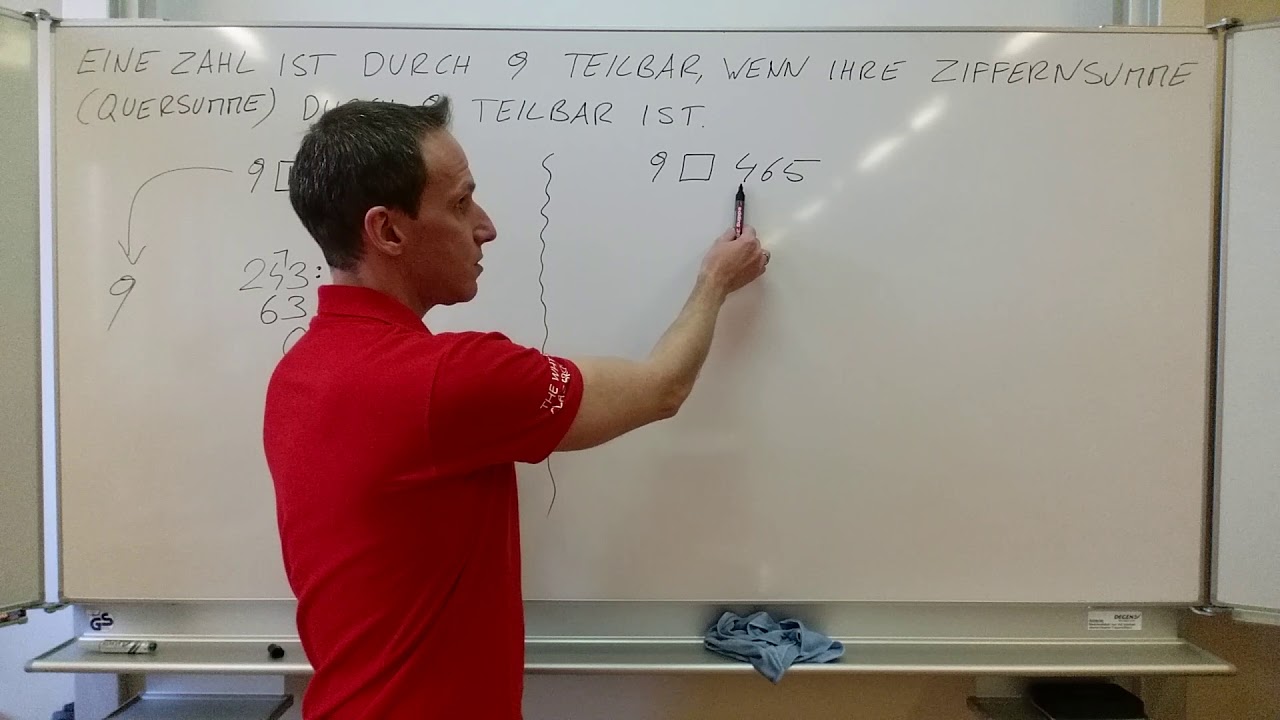 EINE ZAHL IST DURCH 9 TEILBAR, WENN IHRE ZIFFERNSUMME
(QUERSUMME) TEILBAR IST.
9 □
9 □ 465
7
243:
9
63
0
THE
GS